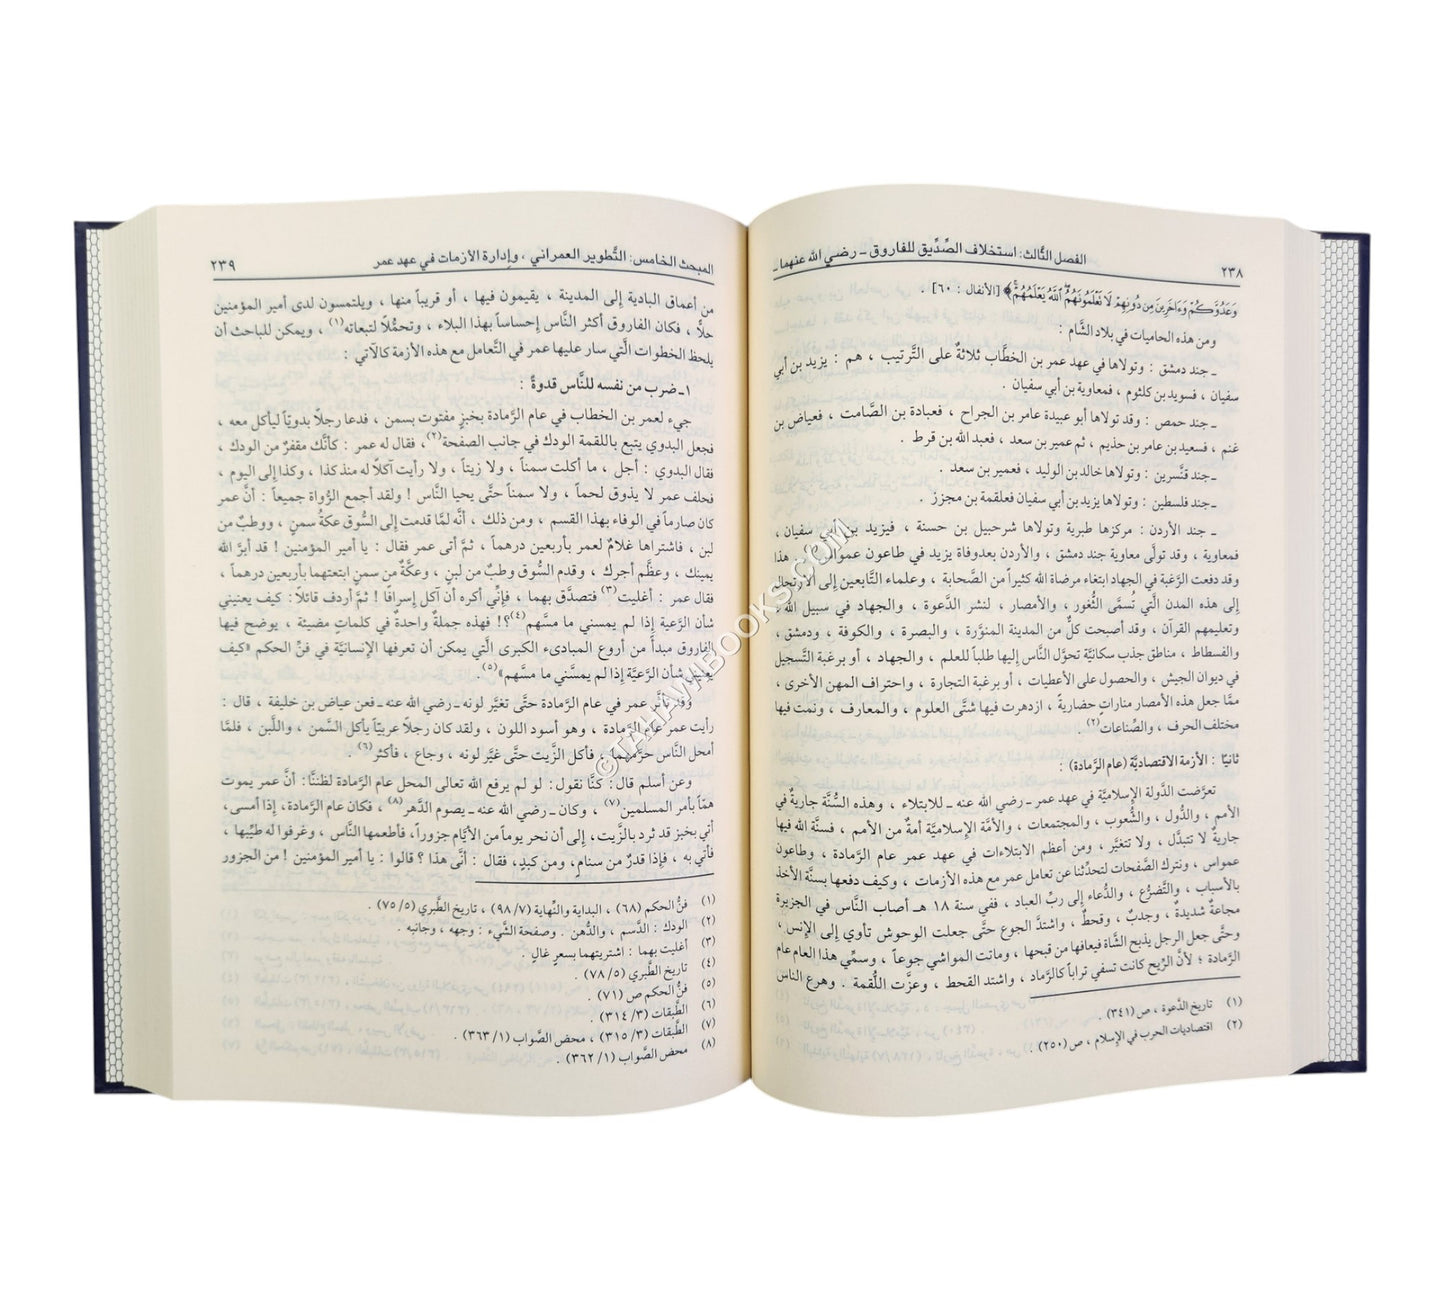 ٢٣٨
الفصل الثالث: استخلاف الصِّدِّيق للفاروق ـ رضي الله عنهما ـ
وَعَدُوَّكُمْ وَءَاخَرِينَ مِن دُونِهِمْ لَا نَعْلَمُونَهُمُ اللَّهُ يَعْلَمُهُمْ﴾ [الأنفال : ٦٠] .
ومن هذه الحاميات في بلاد الشَّام :
ـ جند دمشق : وتولاها في عهد عمر بن الخطَّاب ثلاثةٌ على التَّرتيب ، هم : يزيد بن أبي
سفيان ، فسويد بن كلثوم ، فمعاوية بن أبي سفيان .
ـ جند حمص : وقد تولاها أبو عبيدة عامر بن الجراح ، فعبادة بن الصَّامت ، فعياض بن
غنم ، فسعيد بن عامر بن حذيم ، ثم عمير بن سعد ، فعبد الله بن قرط .
ـ جند قنَّسرين : وتولاها خالد بن الوليد ، فعمير بن سعد .
ـ جند فلسطين : وتولاها يزيد بن أبي سفيان فعلقمة بن مجزز .
ـ جند الأردن : مركزها طبرية وتولاها شرحبيل بن حسنة ، فيزيد بن أبي سفيان ،
فمعاوية ، وقد تولَّى معاوية جند دمشق ، والأردن بعدوفاة يزيد في طاعون عمواس . هذا
وقد دفعت الرَّغبة في الجهاد ابتغاء مرضاة الله كثيراً من الصَّحابة ، وعلماء التَّابعين إلى الارتحال
إلى هذه المدن الَّتي تُسمَّى الثُّغور ، والأمصار ، لنشر الدَّعوة ، والجهاد في سبيل الله ،
وتعليمهم القرآن ، وقد أصبحت كلٌّ من المدينة المنوَّرة ، والبصرة ، والكوفة ، ودمشق ،
والفسطاط ، مناطق جذب سكانيَّة تحوَّل النَّاس إليها طلباً للعلم ، والجهاد ، أو برغبة التَّسجيل
في ديوان الجيش ، والحصول على الأعطيات ، أو برغبة التجارة ، واحتراف المهن الأخرى ،
ممَّا جعل هذه الأمصار مناراتٍ حضاريةً ، ازدهرت فيها شتَّى العلوم ، والمعارف ، ونمت فيها
مختلف الحرف ، والصِّناعات(٢) .
ثانيًا : الأزمة الاقتصاديَّة (عام الرَّمادة) :
تعرَّضت الدَّولة الإسلاميَّة في عهد عمر ـ رضي الله عنه ـ للابتلاء ، وهذه السُّنَّة جاريةٌ في
الأمم ، والدُّول ، والشُّعوب ، والمجتمعات ، والأمَّة الإسلاميَّة أمةٌ من الأمم ، فسنَّة الله فيها
جاريةٌ لا تتبدَّل ، ولا تتغيَّر ، ومن أعظم الابتلاءات في عهد عمر عام الرَّمادة ، وطاعون
عمواس ، ونترك الصَّفحات لتحدِّثنا عن تعامل عمر مع هذه الأزمات ، وكيف دفعها بسنَّة الأخذ
بالأسباب ، والتَّضرُّع ، والدُّعاء إلى ربِّ العباد ، ففي سنة ١٨ هـ أصاب النَّاس في الجزيرة
مجاعةٌ شديدةٌ ، وجدبٌ ، وقحطٌ ، واشتدَّ الجوع حتَّى جعلت الوحوش تأوي إلى الإنس ،
وحتَّى جعل الرجل يذبح الشَّاة فيعافها من قبحها ، وماتت المواشي جوعاً ، وسمِّي هذا العام عام
الرَّمادة ؛ لأنَّ الرِّيح كانت تسفي تراباً كالرَّماد ، واشتد القحط ، وعزَّت اللُّقمة . وهرع الناس
(١) تاريخ الدَّعوة ، ص (٣٤١) .
(٢) اقتصاديات الحرب في الإسلام ، ص (٢٥٠) .
المبحث الخامس: التَّطوير العمراني ، وإدارة الأزمات في عهد عمر
٢٣٩
من أعماق البادية إلى المدينة ، يقيمون فيها ، أو قريباً منها ، ويلتمسون لدى أمير المؤمنين
حلًّا ، فكان الفاروق أكثر النَّاس إحساساً بهذا البلاء ، وتحمُّلاً لتبعاته(١) ، ويمكن للباحث أن
يلحظ الخطوات الَّتي سار عليها عمر في التَّعامل مع هذه الأزمة كالآتي :
١ـ ضرب من نفسه للنَّاس قدوةً :
جيء لعمر بن الخطاب في عام الرَّمادة بخبزٍ مفتوت بسمن ، فدعا رجلاً بدويّاً ليأكل معه ،
فجعل البدوي يتبع باللقمة الودك في جانب الصفحة(٢) ، فقال له عمر : كأنَّك مقفرٌ من الودك ،
فقال البدوي : أجل ، ما أكلت سمناً ، ولا زيتاً ، ولا رأيت آكلاً له منذ كذا ، وكذا إلى اليوم ،
فحلف عمر لا يذوق لحماً ، ولا سمناً حتَّى يحيا النَّاس ! ولقد أجمع الرُّواة جميعاً : أنَّ عمر
كان صارماً في الوفاء بهذا القسم ، ومن ذلك ، أنَّه لمَّا قدمت إلى السُّوق عكةُ سمنٍ ، ووطبٌ من
لبن ، فاشتراها غلامٌ لعمر بأربعين درهماً ، ثمَّ أتى عمر فقال : يا أمير المؤمنين ! قد أبرَّ الله
يمينك ، وعظَّم أجرك ، وقدم السُّوق وطبٌ من لبنٍ ، وعكَّةٌ من سمنٍ ابتعتهما بأربعين درهماً ،
فقال عمر : أغليت(٣) فتصدَّق بهما ، فإنِّي أكره أن آكل إسرافاً ! ثمَّ أردف قائلاً : كيف يعنيني
شأن الرَّعية إذا لم يمسني ما مسَّهم(٤)؟! فهذه جملةٌ واحدةٌ في كلماتٍ مضيئة ، يوضح فيها
الفاروق مبدأً من أروع المبادىء الكبرى الَّتي يمكن أن تعرفها الإنسانيَّة في فنِّ الحكم «كيف
يعنيني شأن الرَّعيَّة إذا لم يمسَّني ما مسَّهم»(٥) .
وقد تأثَّر عمر في عام الرَّمادة حتَّى تغيَّر لونه ـ رضي الله عنه ـ فعن عياض بن خليفة ، قال :
رأيت عمر عام الرَّمادة ، وهو أسود اللون ، ولقد كان رجلاً عربيّاً يأكل السَّمن ، واللَّبن ، فلمَّا
أمحل النَّاس حرَّمهما ، فأكل الزَّيت حتَّى غيَّر لونه ، وجاع ، فأكثر(٦) .
وعن أسلم قال : كنَّا نقول : لو لم يرفع الله تعالى المحل عام الرَّمادة لظننَّا : أنَّ عمر يموت
همّاً بأمر المسلمين(٧) ، وكان ـ رضي الله عنه ـ يصوم الدَّهر(٨) ، فكان عام الرَّمادة، إذا أمسى ،
أتي بخبز قد ثرد بالزَّيت، إلى أن نحر يوماً من الأيَّام جزوراً، فأطعمها النَّاس ، وغرفوا له طيِّبها ،
فأتي به ، فإذا قدرٌ من سنامٍ، ومن كبدٍ، فقال : أنَّى هذا ؟ قالوا : يا أمير المؤمنين ! من الجزور
(١) فنُّ الحكم (٦٨) ، البداية والنِّهاية (٩٨/٧) ، تاريخ الطَّبري (٧٥/٥) .
(٢) الودك : الدَّسم ، والدُّهن . وصفحة الشَّيء : وجهه ، وجانبه .
(٣) أغليت بهما : اشتريتهما بسعرٍ غالٍ .
(٤) تاريخ الطَّبري (٧٨/٥) .
(٥) فنُّ الحكم ص (٧١) .
(٦) الطَّبقات (٣١٤/٣) .
(٧) الطَّبقات (٣١٥/٣) ، محض الصَّواب (٣٦٣/١) .
(٨) محض الصَّواب (٣٦٢/١) .
© TAHAWIBOOKS.COM